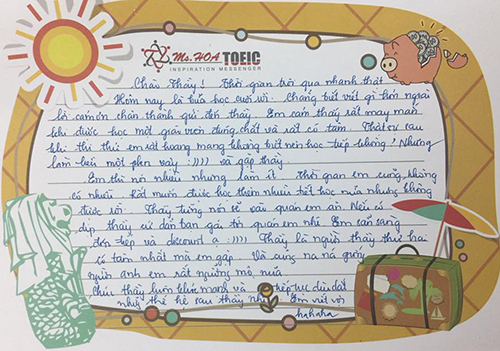 Ms.HOA TOEIC
INSPIRATION MESSENGER
Chào Thầy! Thời gian trôi qua nhanh thật
Hôm nay là buổi học cuối rồi. Chẳng biết viết gì hơn ngoài
lời cảm ơn chân thành gửi đến thầy. Em cảm thấy rất may mắn
khi được học một giáo viên đúng chất và rất có tâm. Thật sự sau
khi thi thử em rất hoang mang không biết nên học tiếp không! Nhưng
làm liều một phen vậy :)))) và gặp thầy.
Em thì nói nhiều nhưng làm ít. Thời gian em cũng không
có nhiều. Rất muốn được học thêm nhiều tiết học nữa nhưng không
được rồi. Thầy từng nói sẽ vào quán em ăn. Nếu có
dịp thầy cứ dẫn bạn gái tới quán em nhé. Em sẵn sàng
đón tiếp và discount ạ :)))). Thầy là người thầy thứ hai
có tâm nhất mà em gặp. Vô cùng na ná giống
người anh em rất ngưỡng mộ nữa.
Chúc thầy luôn khỏe mạnh và tiếp tục dìu dắt
nhiều thế hệ sau thầy nhé. Em viết vội
hahaha